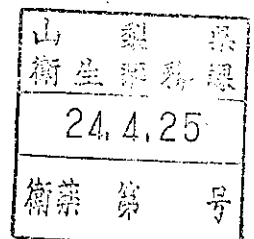 山梨県
衛生薬務課
24.4.25
衛薬第 号